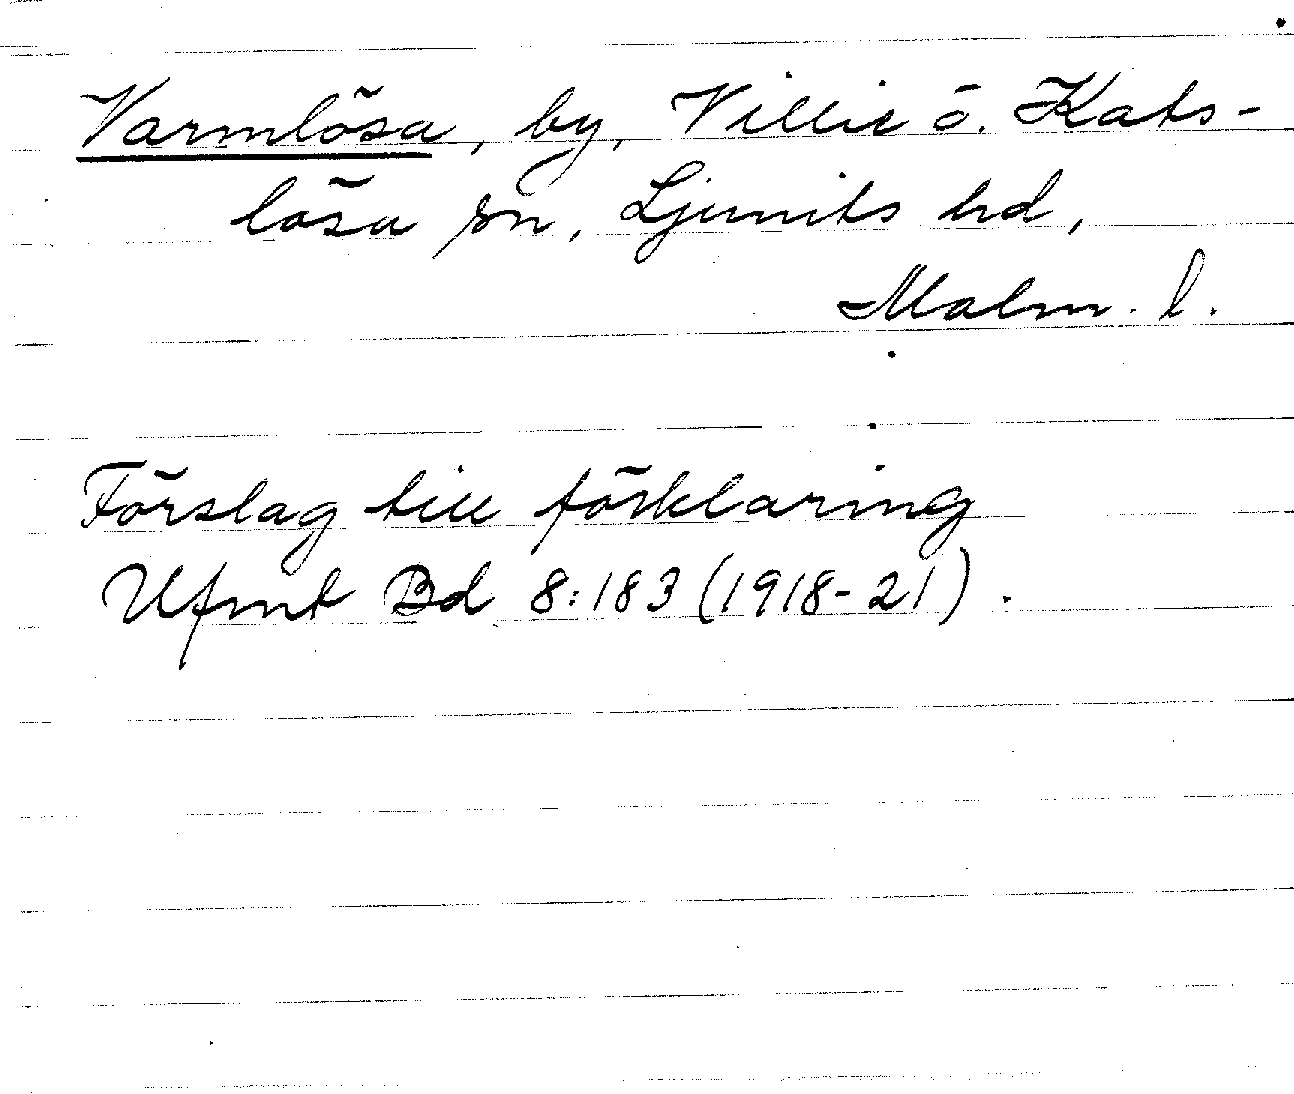 Varmlösa, by, Villie ö. Kats-
lösa sn, Ljunits hd,
Malm. l.
Förslag till förklaring
Ufmt Bd 8:183 (1918-21).